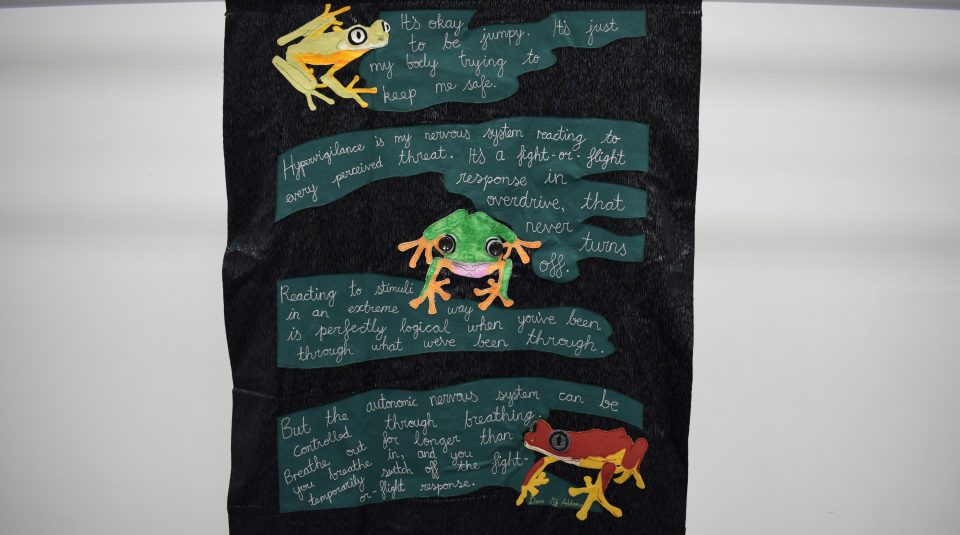 It's okay
to be jumpy. It's just
my body trying to
keep me safe.
Hypervigilance is my nervous system reacting to
every perceived threat. It's a fight-or-flight
response in
overdrive, that
never
turns
off.
Reacting to stimuli
in an extreme way
is perfectly logical when you've been
through what we've been through.
But the autonomic nervous system can be
controlled through breathing.
Breathe out for longer than
you breathe in, and you
temporarily switch off the fight-
or-flight response.